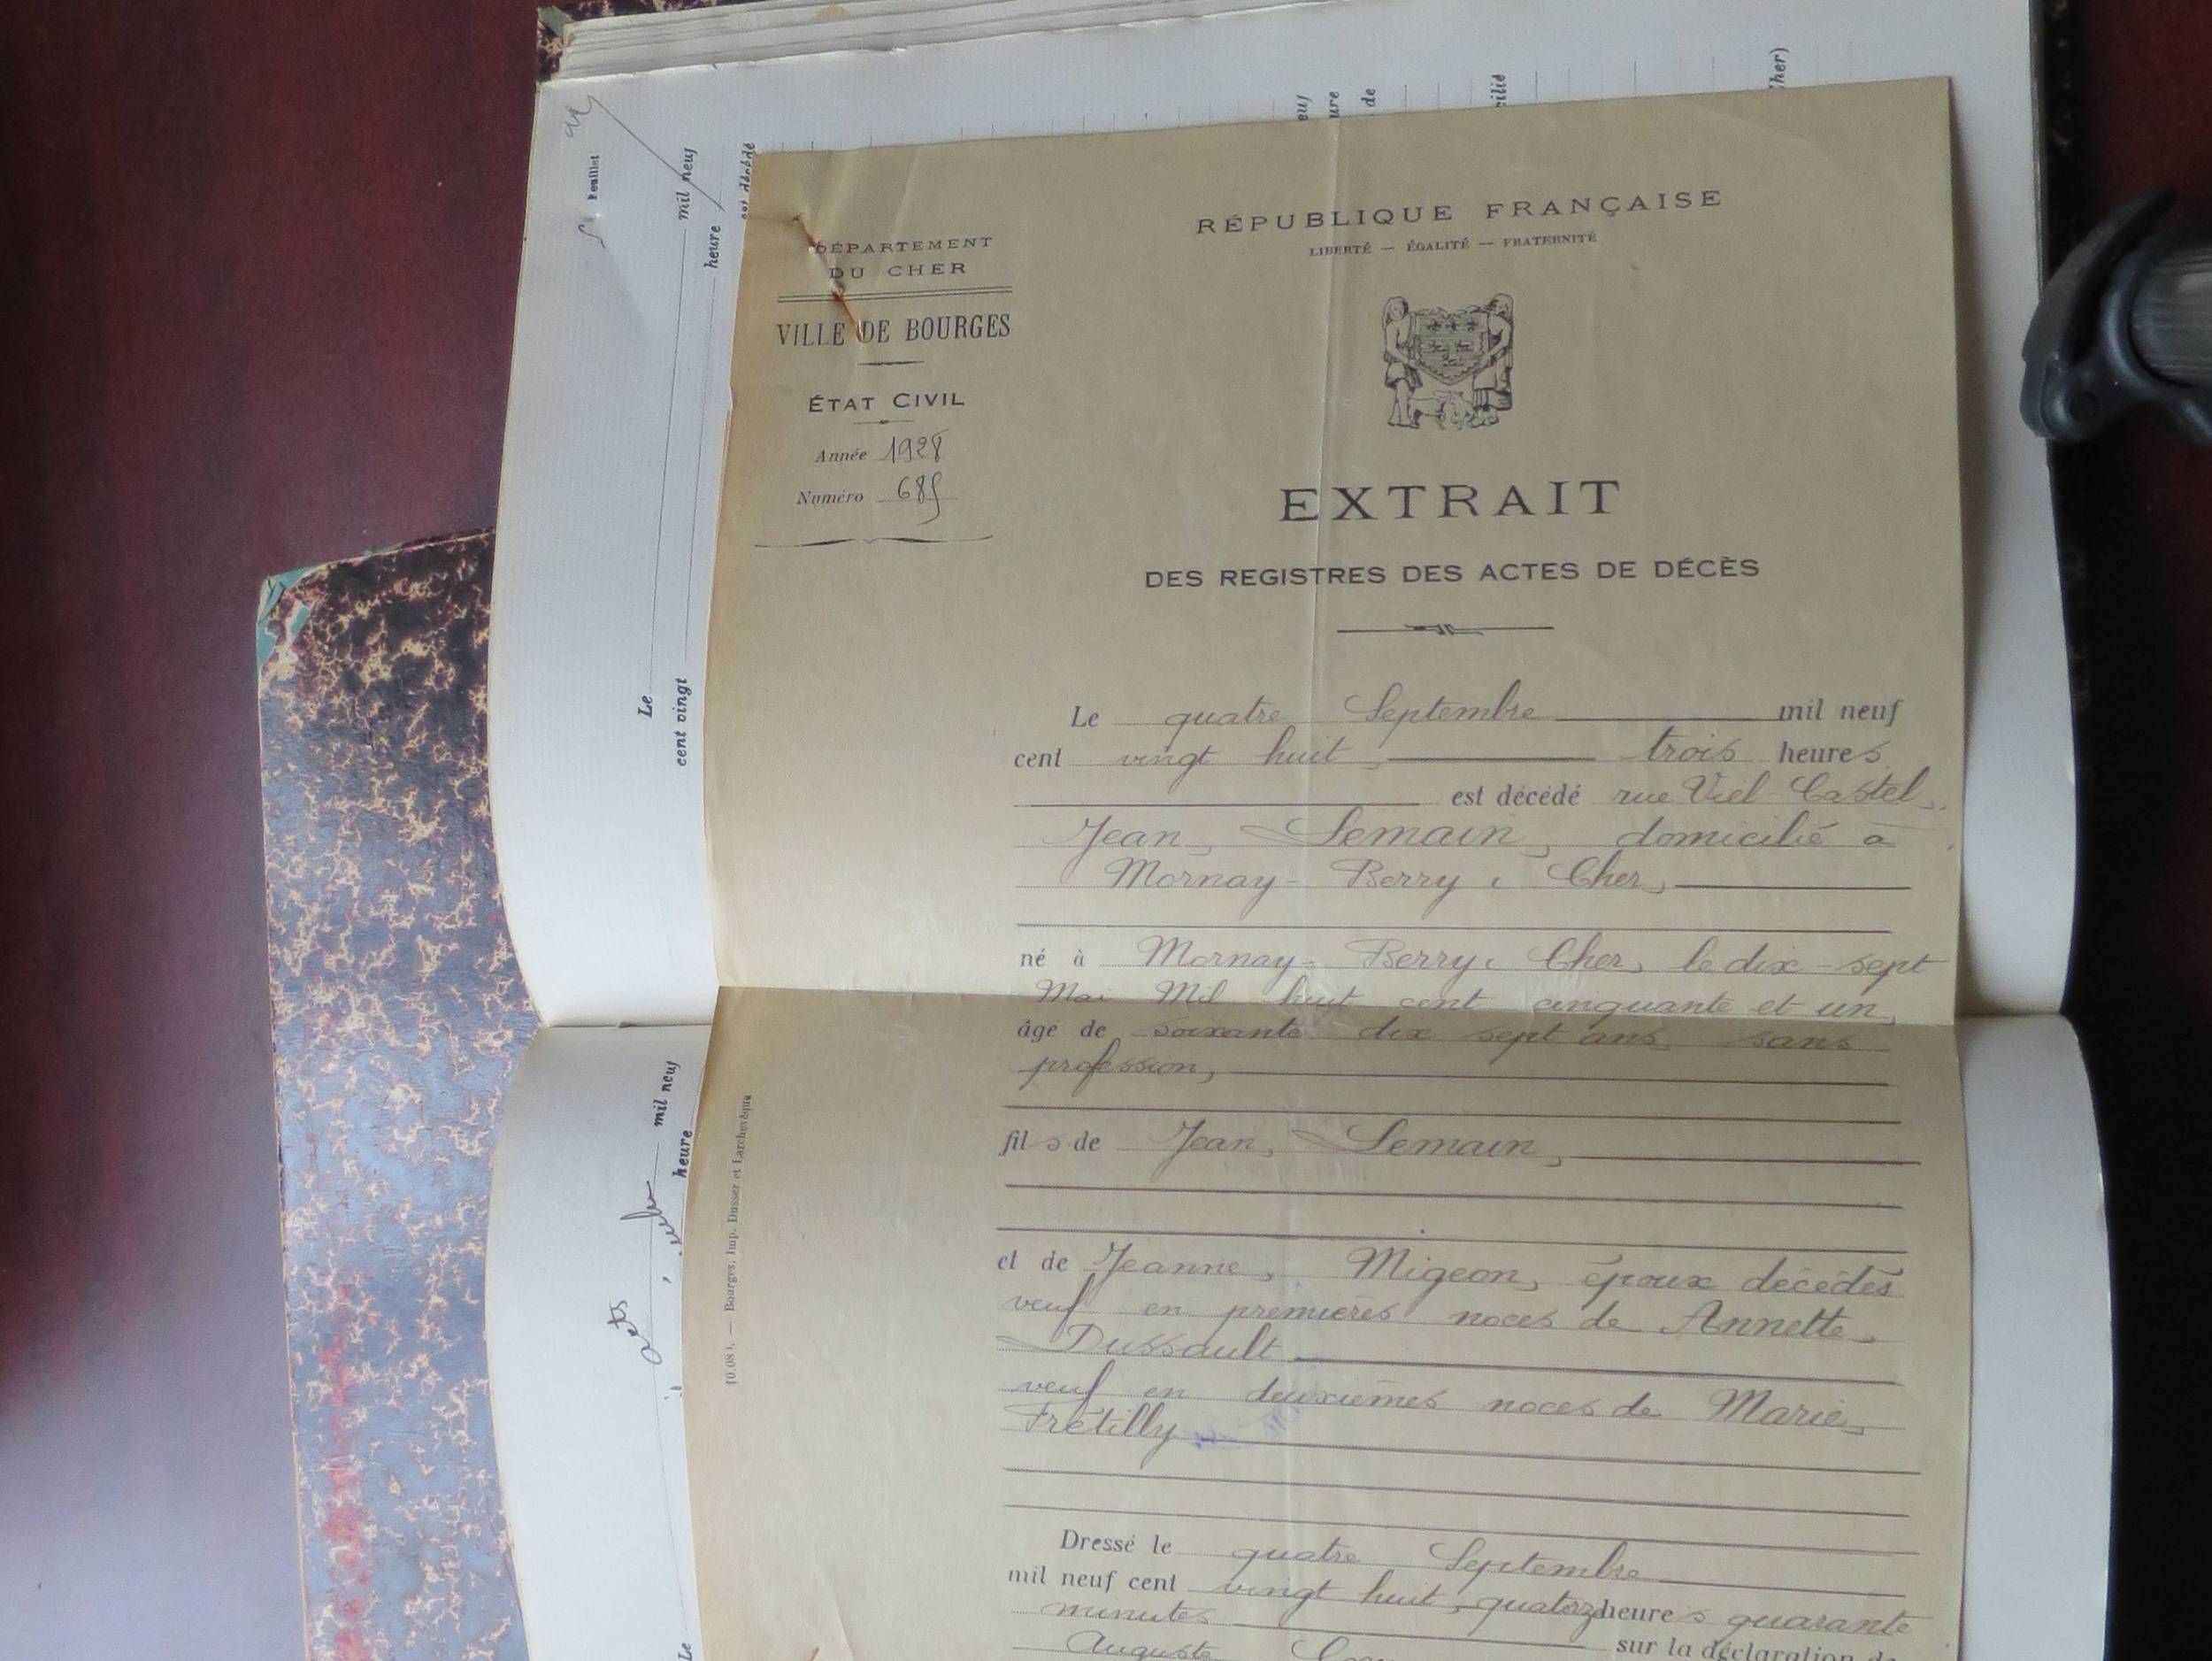 DÉPARTEMENT
DU CHER
VILLE DE BOURGES
ÉTAT CIVIL
Année 1928
Numéro 685
RÉPUBLIQUE FRANÇAISE
LIBERTÉ — ÉGALITÉ — FRATERNITÉ
EXTRAIT
DES REGISTRES DES ACTES DE DÉCÈS
Le quatre Septembre mil neuf
cent vingt huit, trois heures
est décédé rue Viel Castel,
Jean, Lemain, domicilié à
Mornay-Berry, Cher,
né à Mornay-Berry, Cher, le dix-sept
Mai Mil huit cent cinquante et un,
âgé de soixante dix sept ans, sans
profession,
fils de Jean, Lemain,
et de Jeanne, Migeon, époux décédés
veuf en premières noces de Annette
Dussault
veuf en deuxièmes noces de Marie,
Frétilly
Dressé le quatre Septembre
mil neuf cent vingt huit, quatorze heures quarante
minutes sur la déclaration de
Auguste
Bourges, Imp. Dusser et Larchevêque
Feuillet
Le mil neuf
cent vingt heure
est décédé
mil neuf
heure
Le